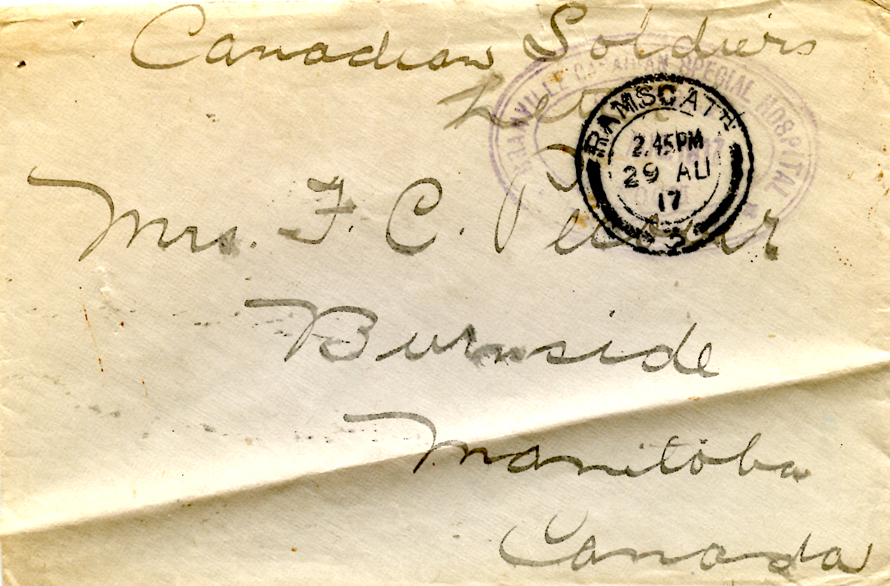 Canadian Soldiers
Letter
GRANVILLE CANADIAN SPECIAL HOSPITAL
RAMSGATE
2.45PM
29 AU
17
2
Mrs. F. C.
Burnside
Manitoba
Canada